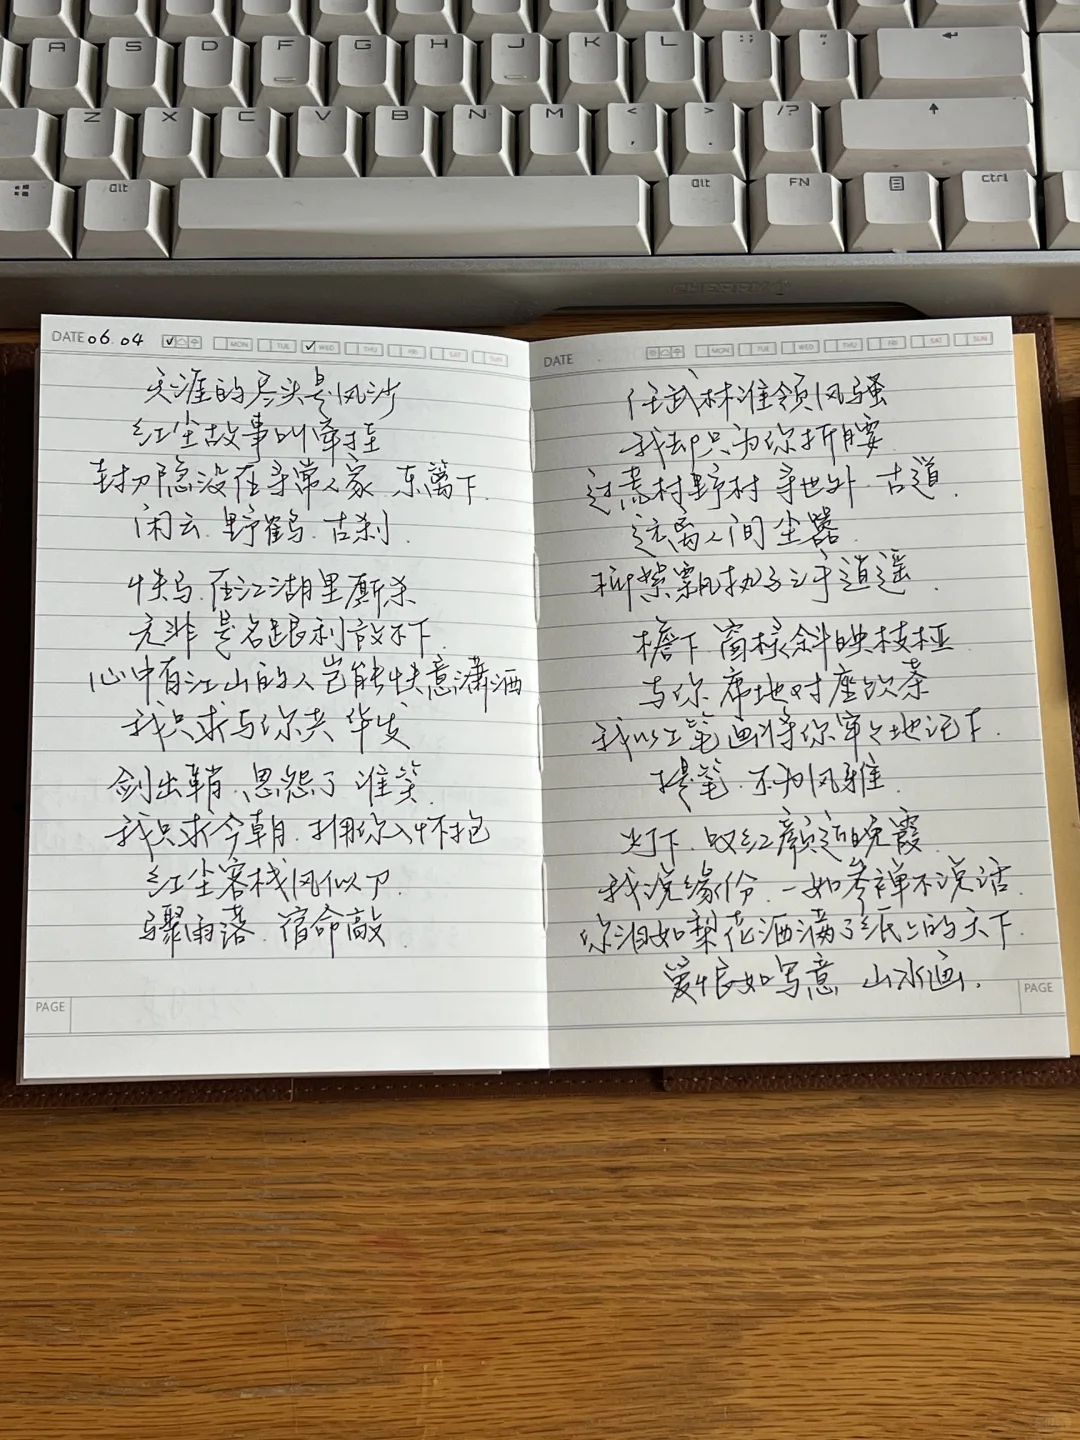 A S D F G H J K L : ; " '
Z X C V B N M < , > . /?
alt alt FN ctrl
CHERRY
DATE 06.04 MON TUE WED THU FRI SAT SUN
天涯的尽头是风沙
红尘故事叫牵挂
封刀隐没在寻常人家 东篱下.
闲云.野鹤.古刹.
快马.在江湖里厮杀
无非是名跟利放不下.
心中有江山的人岂能快意潇洒
我只求与你共华发
剑出鞘.恩怨了 谁笑.
我只求今朝.拥你入怀抱
红尘客栈风似刀.
骤雨落.宿命敲
PAGE
DATE MON TUE WED THU FRI SAT SUN
任武林谁领风骚
我却只为你折腰
过荒村野村寻世外 古道.
远离人间尘嚣.
柳絮飘执子之手逍遥.
檐下 窗棂斜映枝桠
与你席地对座饮茶
我以工笔画将你牢々地记下.
提笔.不为风雅.
灯下.叹红颜近晚霞.
我说缘份.一如参禅不说话.
你泪如梨花洒满了纸上的天下.
爱恨如写意 山水画.
PAGE